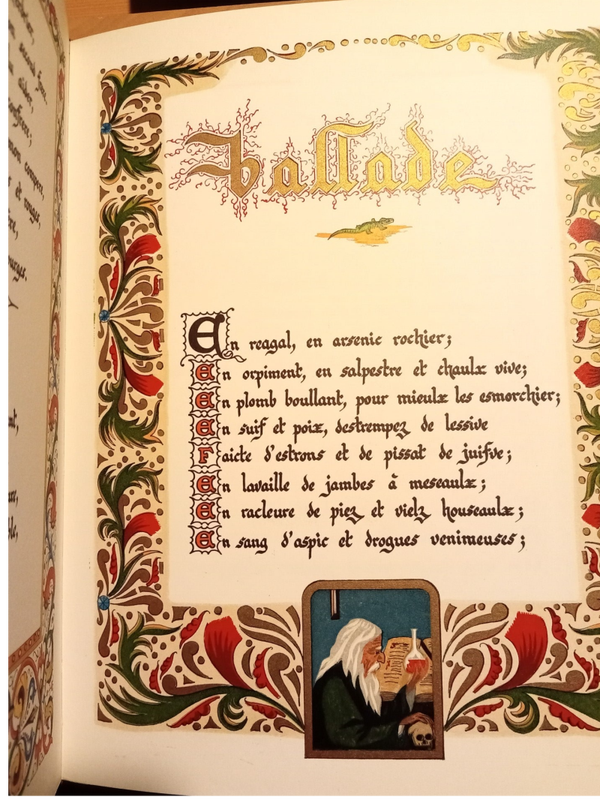 ballade
En reagal, en arsenic rochier;
En orpiment, en salpestre et chaulx vive;
En plomb boullant, pour mieulx les esmorchier;
En suif et poix, destrempez de lessive
Faicte d'estrons et de pissat de juifve;
En lavaille de jambes à meseaulx;
En racleure de piez et vielz houseaulx;
En sang d'aspic et drogues venimeuses;